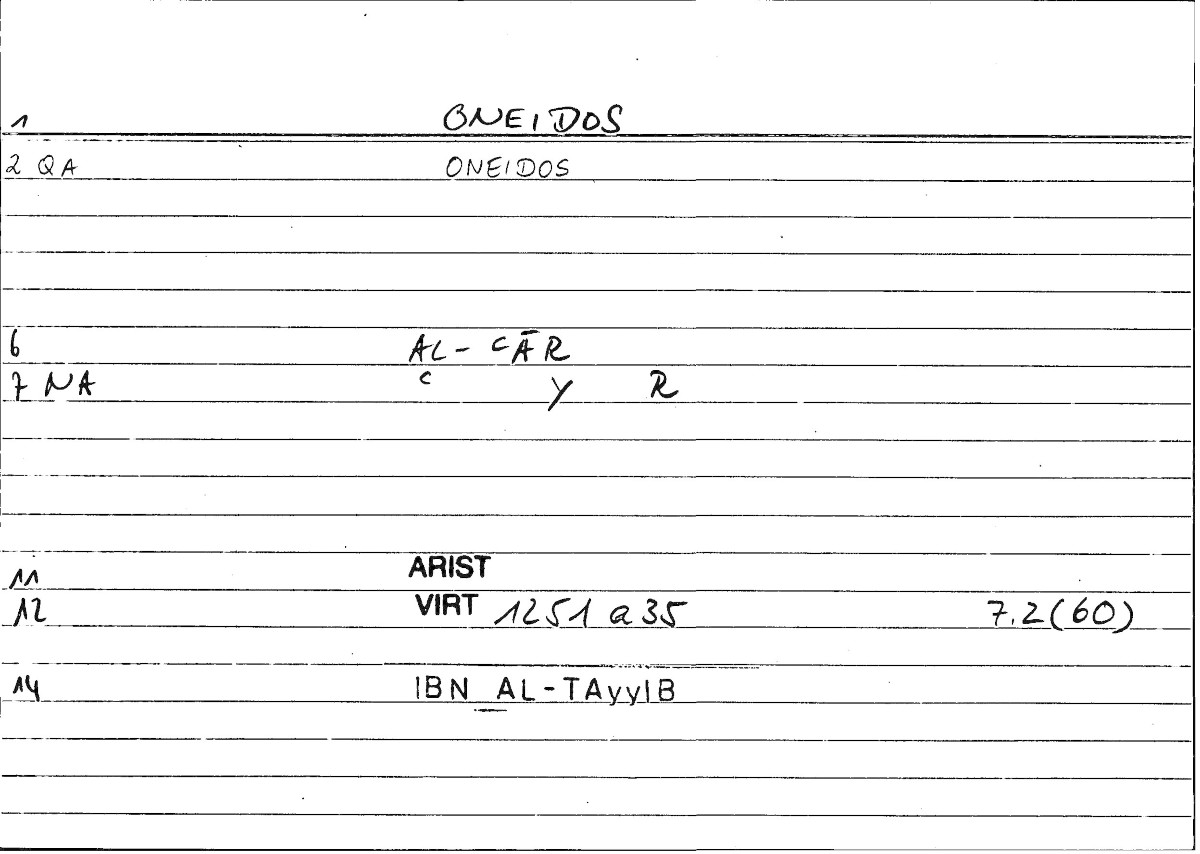 1 ONEIDOS
2 QA ONEIDOS
6 AL-CĀR
7 NA C Y R
11 ARIST
12 VIRT 1251 a 35 7.2(60)
14 IBN AL-TAyyIB